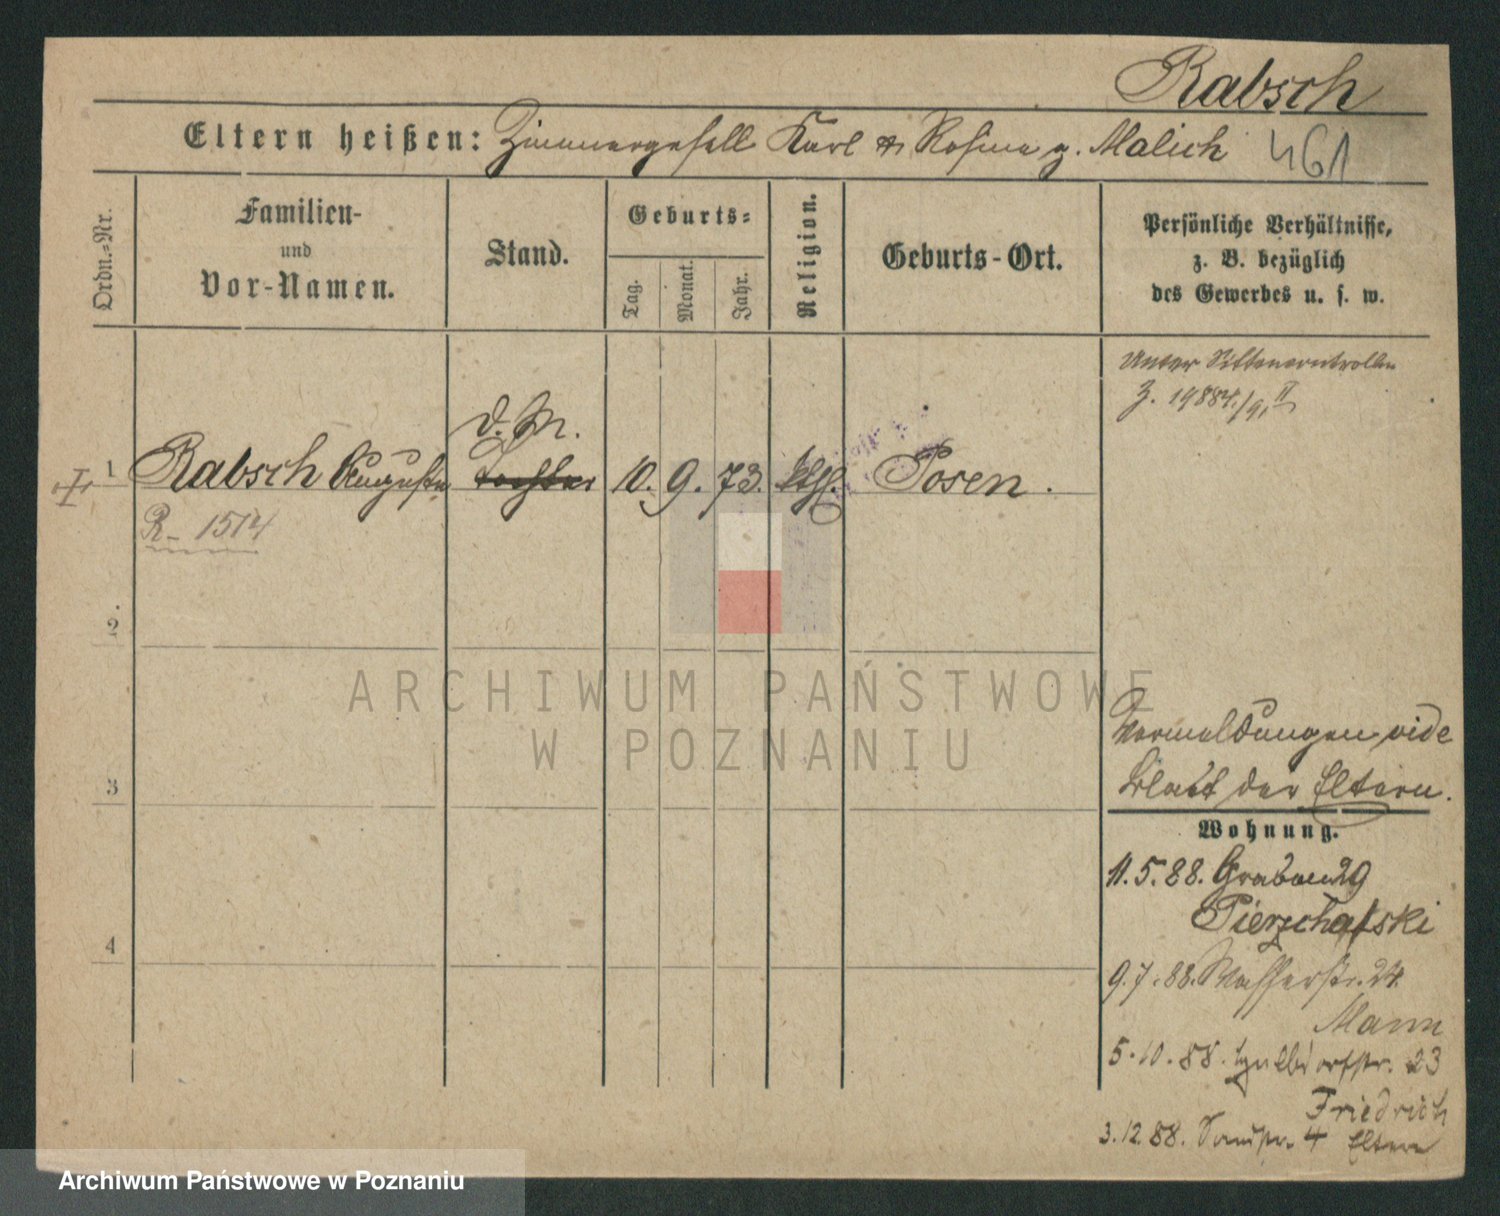 Rabsch
Eltern heißen: Zimmergesell Karl u Rosina g. Malich 461
Ordn.-Nr.
Familien-
und
Vor-Namen.
Stand.
Geburts-
Tag.
Monat.
Jahr.
Religion.
Geburts-Ort.
Persönliche Verhältnisse,
z. B. bezüglich
des Gewerbes u. s. w.
Unter Sittencontrolle
19884/91 II
D. M.
1 Rabsch Auguste Tochter 10. 9. 73. kthl. Posen.
R- 1514
2.
3
4
Vermeldungen vide
Blatt der Eltern.
Wohnung.
11.5.88. Graben 29
Pierzchalski
9.7.88. Wasserstr. 24.
Mann
5.10.88. 23
Friedrich
3.12.88. 4 Eltern
ARCHIWUM PAŃSTWOWE
W POZNANIU
Archiwum Państwowe w Poznaniu